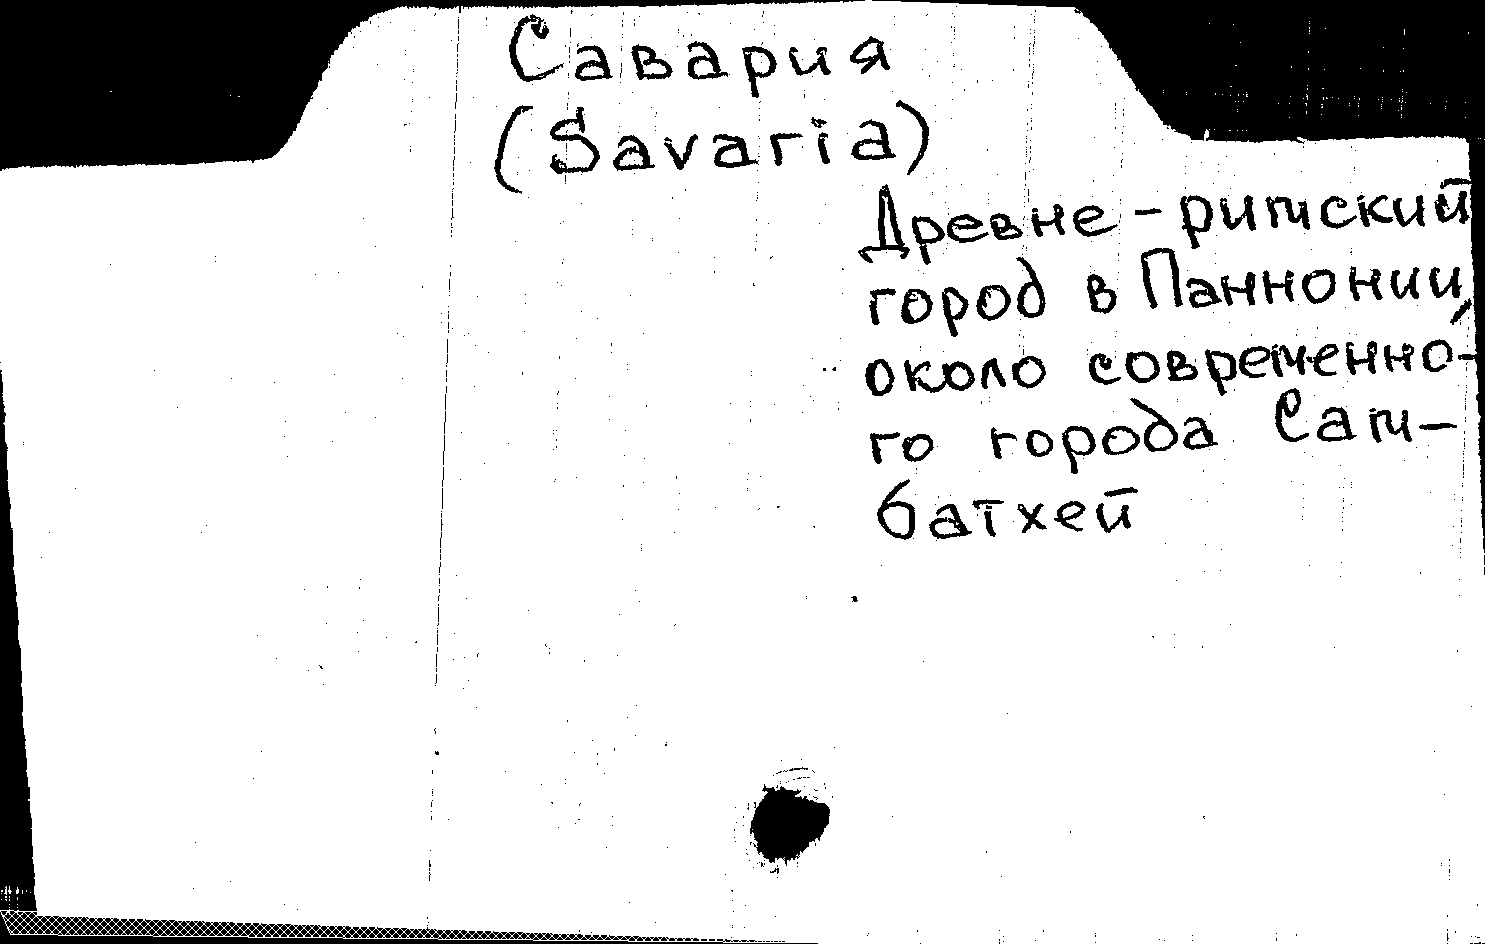 Савария
(Savaria)
Древне-римский
город в Паннонии,
около современно-
го города Сам-
батхей